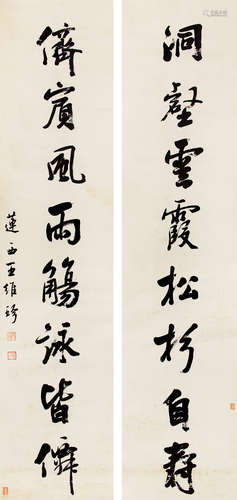 洞壑雲霞松杉自壽
儕賓風雨觴詠皆僊
蓮西王維珍